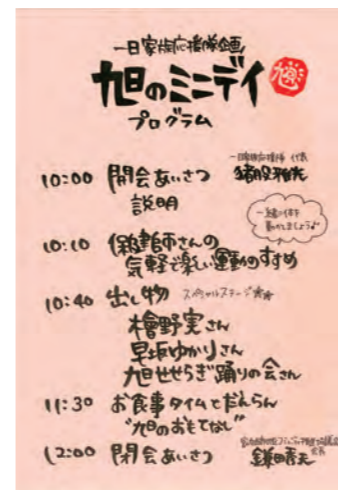 一日家族応援隊企画
旭のミニデイ
プログラム
一日家族応援隊 代表
10:00 開会あいさつ 猪股雅光
説明
一緒に体を
動かしましょう♪
10:10 保健師さんの
気軽で楽しい運動のすすめ
10:40 出し物 スペシャルステージ★★
檜野実さん
早坂ゆかりさん
旭せせらぎ踊りの会さん
11:30 お食事タイムとだんらん
"旭のおもてなし"
12:00 閉会あいさつ
会長